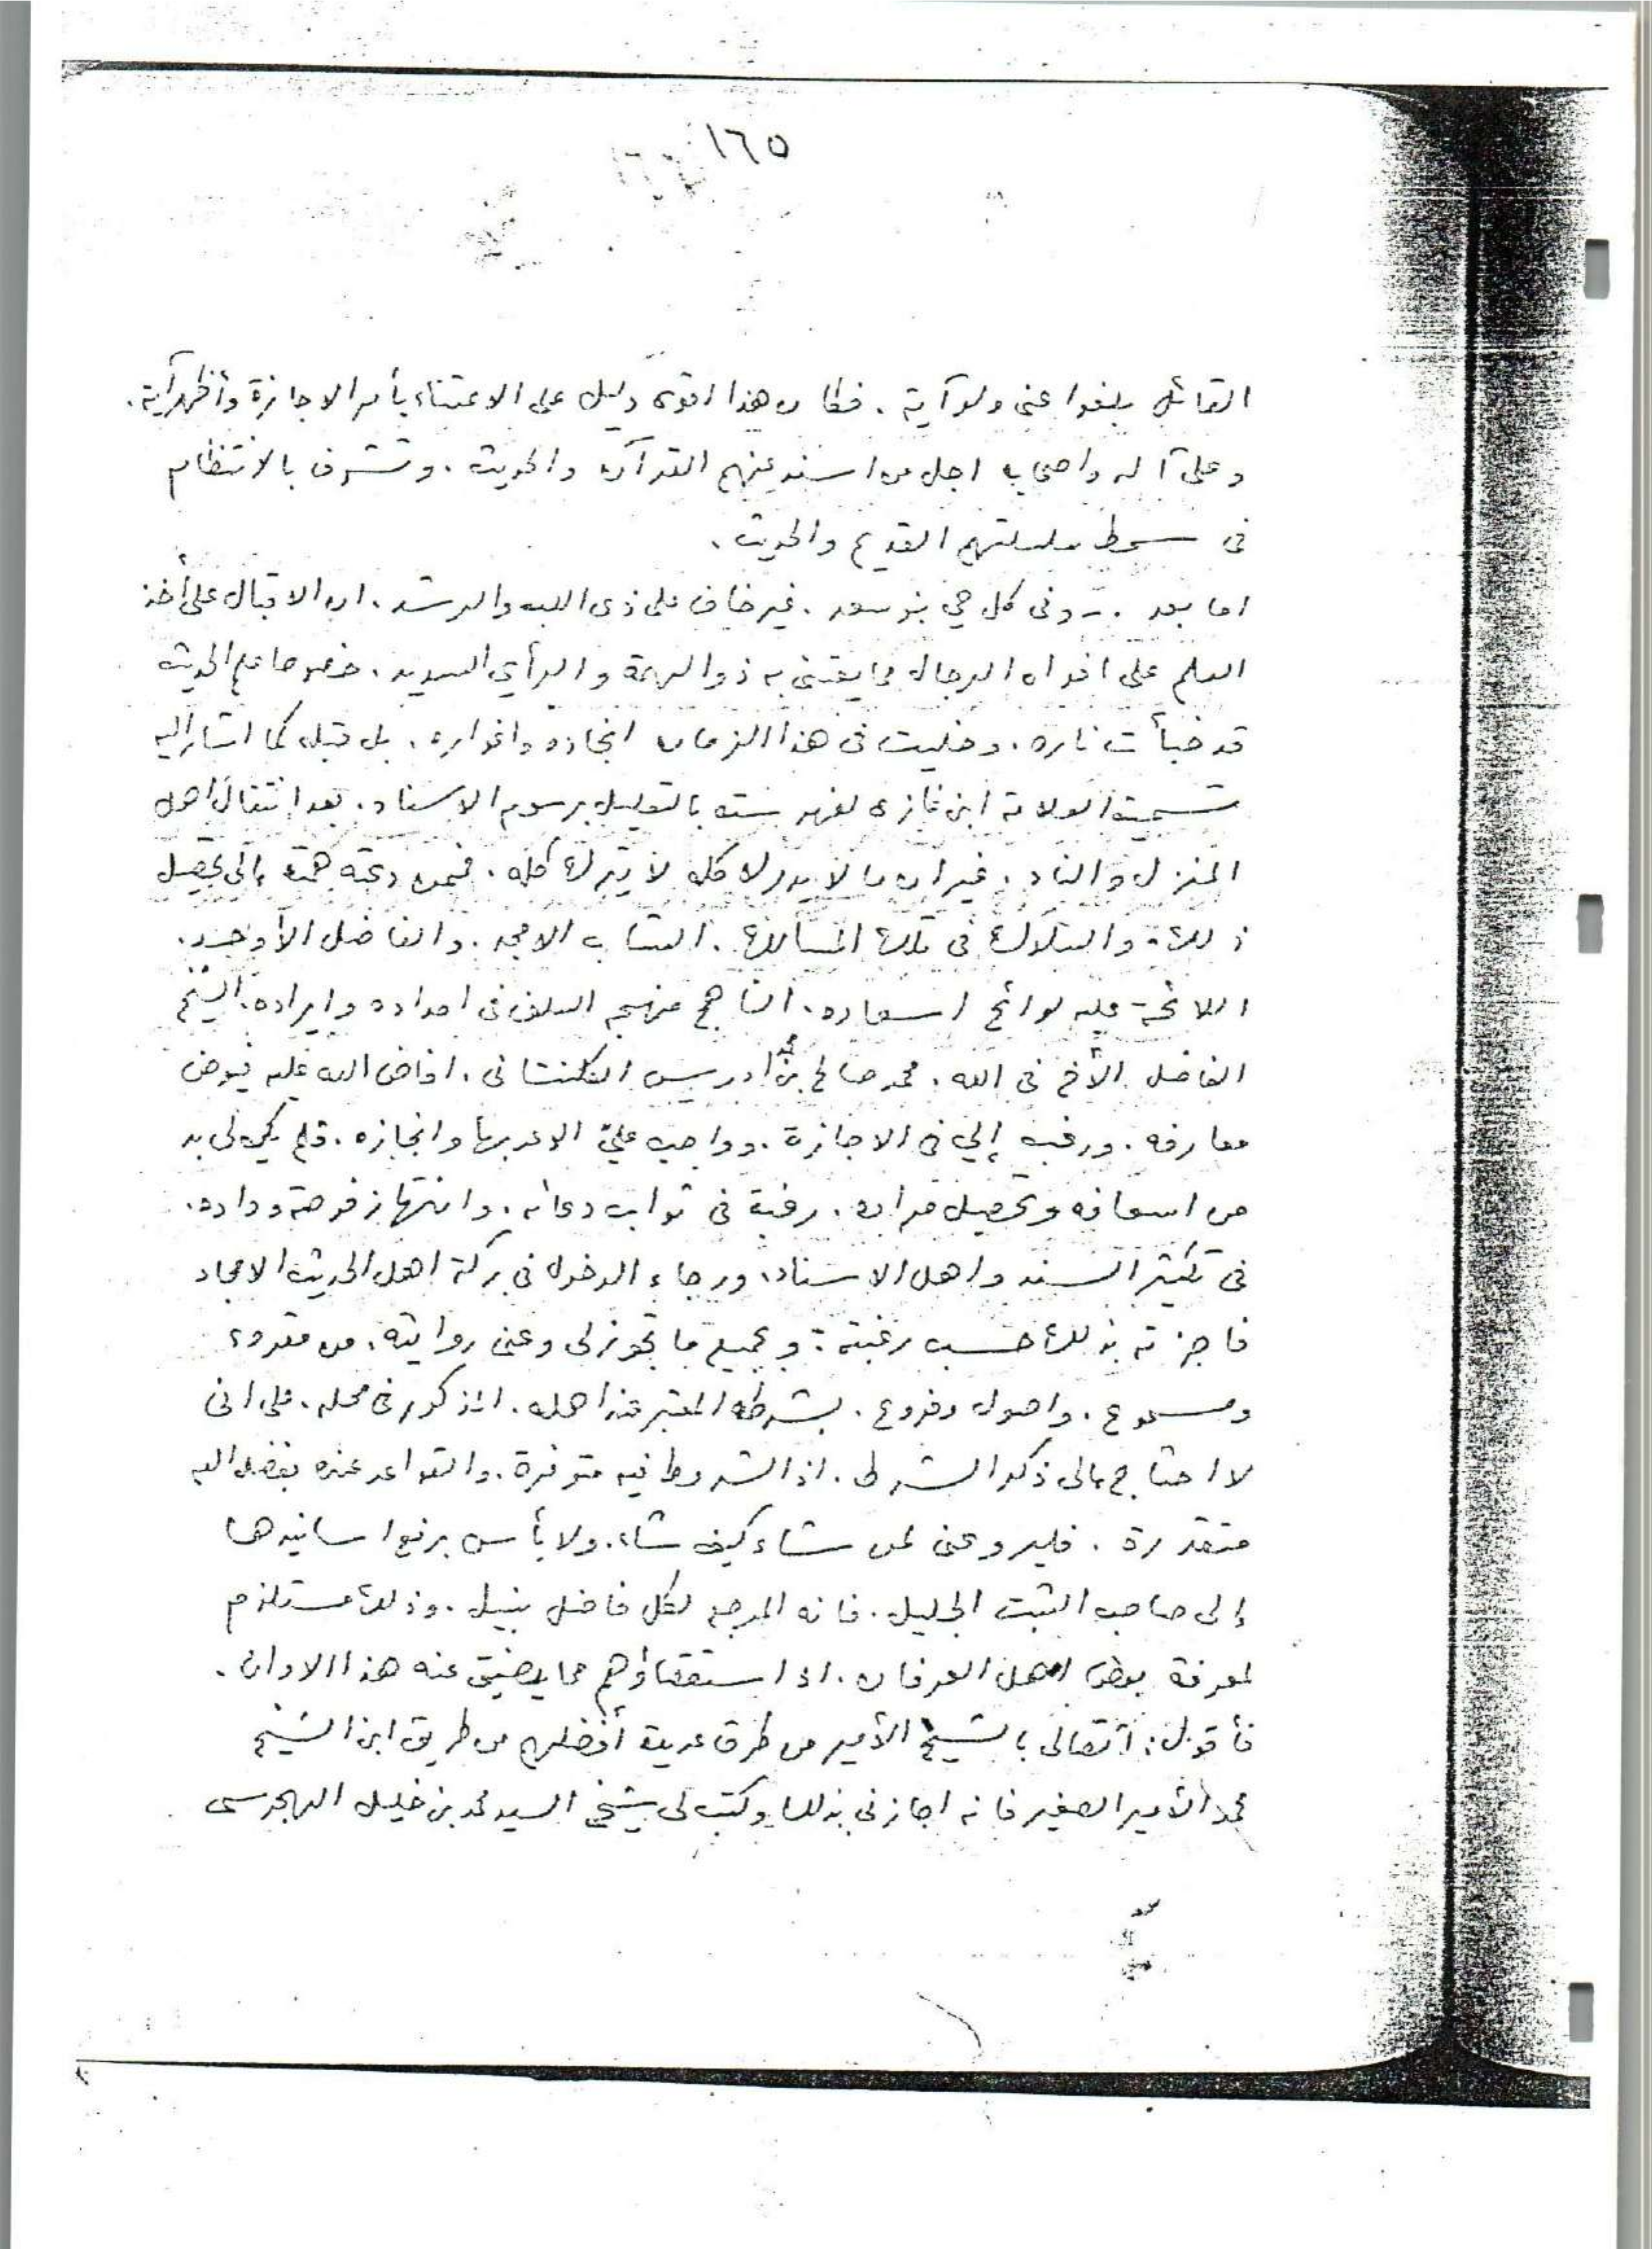 ١٦٥
القائل بلغوا عني ولو آية . فكان هذا اقوى دليل على الاعتناء بأمر الاجازة وأظهر آية .
وعلى آله واصحابه اجل من اسند عنهم القرآن والحديث . وتشرف بالانتظام
في سمط سلسلتهم القديم والحديث .
اما بعد . وفي كل حي بنو سعد . غير خاف على ذي اللب والرشد . ان الاقبال على أخذ
العلم على افواه الرجال مما يعتني به ذو الهمة والرأي السديد . خصوصا علم الحديث
قد خبأت ناره . وخليت في هذا الزمان انجاده واغواره . بل قبله كما اشار اليه
تسمية العلامة ابن غازى لفهرسته بالتعليل برسوم الاسناد . بعد انتقال اهل
المنزل والناد . غير ان ما لا يدرك كله لا يترك كله . فممن دعته همته إلى تحصيل
ذلك والسلوك في تلك المسالك . الشاب الامجد . والفاضل الأوحد .
اللائحة عليه لوائح اسعاده . الناهج منهج السلف في اصداره وايراده . الشيخ
الفاضل الأخ في الله . محمد صالح بن محمد ادريس الكلنتاني . افاض الله عليه فيوض
معارفه . ورغب إلي في الاجازة . وواجب علي الاعد بها وانجازه . فلم يكن لي بد
من اسعافه وتحصيل مراده . رغبة في ثواب دعائه . وانتهاز فرصة وداده .
في تكثير السند واهل الاسناد . ورجاء الدخول في بركة اهل الحديث الامجاد
فاجزته بذلك حسب رغبته . وبجميع ما تجوز لي وعني روايته . من مقروء
ومسموع . واصول وفروع . بشرطه المعتبر عند اهله . المذكور في محله . على انى
لا احتاج إلى ذكر الشرط . اذ الشروط فيه متوفرة . والقواعد عنده بفضل الله
متقررة . فليرو عني لمن شاء كيف شاء . ولا بأس برفع اسانيدها
إلى صاحب الثبت الجليل . فانه المرجع لكل فاضل نبيل . وذلك مستلزم
لمعرفة بعض اهل العرفان . اذ استقصاؤهم مما يضيق عنه هذا الاوان .
فأقول : اتصالى بالشيخ الأمير من طرق عديدة أفضلهم من طريق ابن الشيخ
محمد الأمير الصغير فانه اجازني بذلك وكتب لى شيخي السيد محمد بن خليل الهجرسى